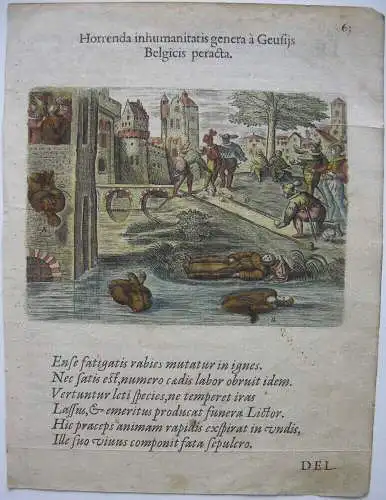 63
Horrenda inhumanitatis genera à Geusijs
Belgicis peracta.
A
B
Ense fatigatis rabies mutatur in ignes.
Nec satis est, numero cadis labor obruit idem.
Vertuntur leti species, ne temperet iras
Lassus, & emeritus producat funera Lictor.
Hic præceps animam rapidis exspirat in vndis,
Ille suo viuus componit fata sepulcro.
DEL